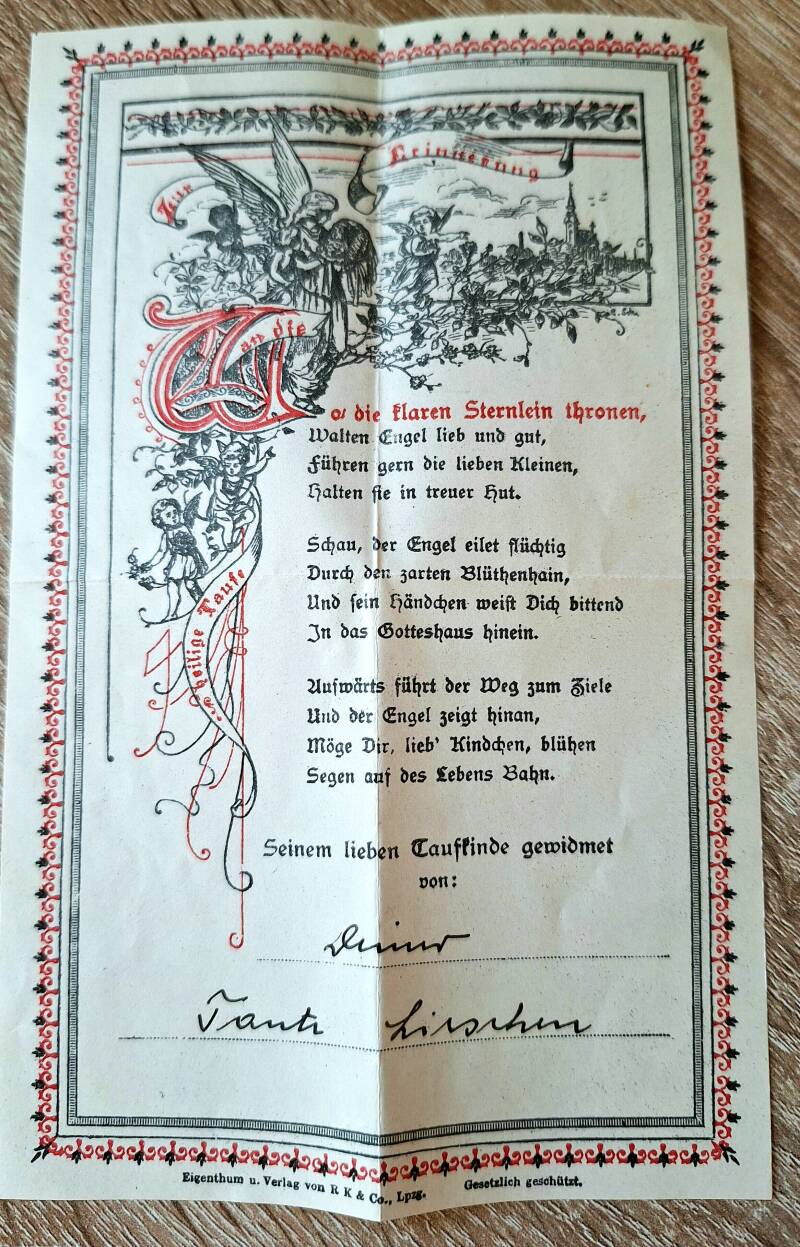 Zur
Erinnerung
an die
heilige Taufe
Wo die klaren Sternlein thronen,
Walten Engel lieb und gut,
Führen gern die lieben Kleinen,
Halten sie in treuer Hut.
Schau, der Engel eilet flüchtig
Durch den zarten Blüthenhain,
Und sein Händchen weist Dich bittend
In das Gotteshaus hinein.
Aufwärts führt der Weg zum Ziele
Und der Engel zeigt hinan,
Möge Dir, lieb' Kindchen, blühen
Segen auf des Lebens Bahn.
Seinem lieben Taufkinde gewidmet
von:
Deiner
Tante Lieschen
Eigenthum u. Verlag von R K & Co., Lpzg. Gesetzlich geschützt.